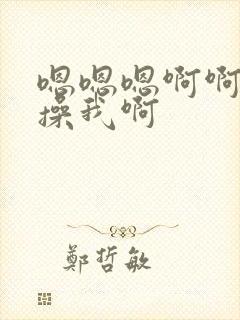 嗯嗯嗯啊啊
操我啊
鄭哲敏